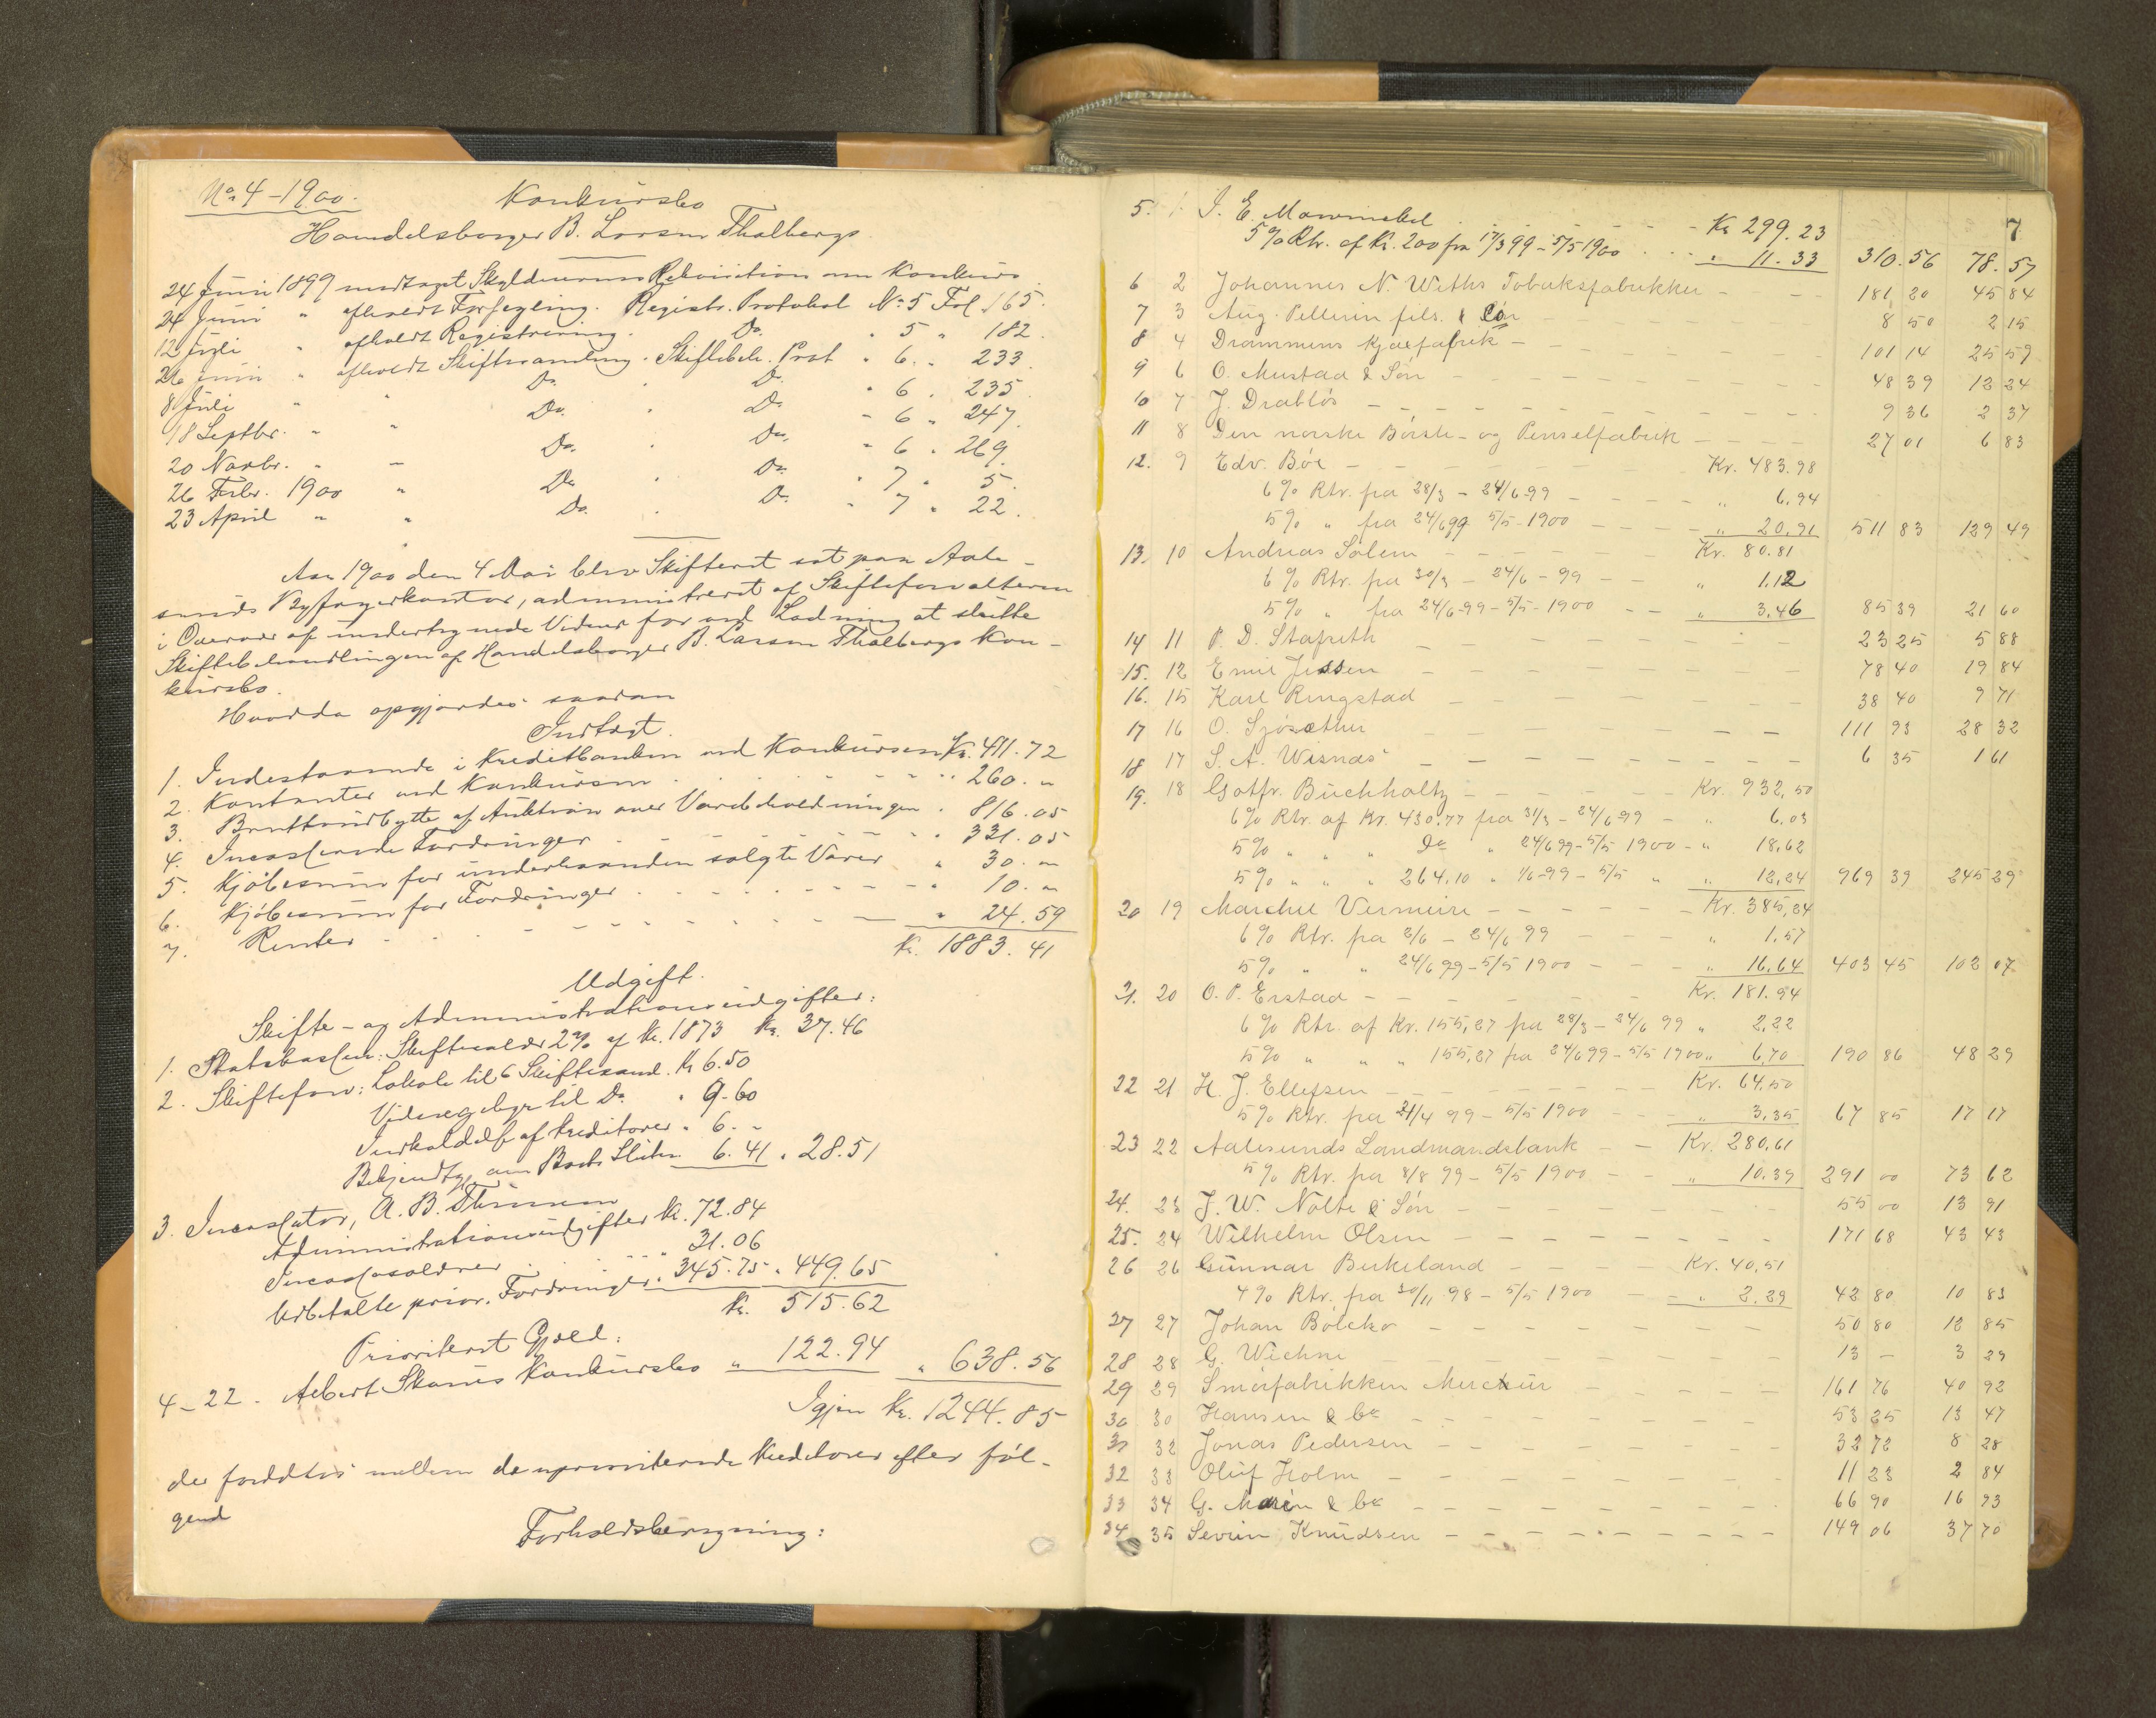 No 4 - 1900.
Konkursbo
Handelsborger B. Larsen Thalbergs
24 Juni 1899 modtaget Skyldnerens Rekvisition om Konkurs
24 Juni " afholdt Forsegling. Registr. Protokol No 5 Fol 165.
12 Juli " afholdt Registrering. Do. " 5 " 182.
26 Juni " afholdt Skiftesamling. Skiftebeh. Prot " 6. " 233.
8 Juli " " Do. " Do " 6. " 235.
18 Septbr. " " Do. " Do " 6 " 247.
20 Novbr. " " Do. " Do. " 6 " 269.
26 Febr. 1900 " Do " Do " 7 " 5.
23 April " " Do. " Do. " 7 " 22.
Aar 1900 den 4 Mai blev Skifteret sat paa Aale-
sunds Byfogedkontor, administreret af Skifteforvalteren
i Overvær af undertegnede Vidner for med Lodning at slutte
Skiftebehandlingen af Handelsborger B. Larsen Thalbergs Kon-
kursbo.
Hvorda opgjordes saadan
Indtægt.
1. Indestaaende i Kreditbanken ved Konkursen Kr. 411.72
2. Kontanter ved Konkursen " 260. "
3. Bruttoudbytte af Auktion over Varebeholdningen " 816.05
4. Incasserede Fordringer " 331.05
5. Kjöbesum for underhaanden solgte Varer " 30. "
6. Kjöbesum for Fordringer " 10. "
7. Renter " 24.59
Kr. 1883.41
Udgift.
Skifte- og Administrationsudgifter:
1. Statskassen: Skiftesalær 2% af Kr. 1873 Kr. 37.46
2. Skifteforv: Lokale til 6 Skiftesaml. Kr 6.50
Vidnegebyr til Do " 9.60
Indkaldelse af Kreditorer " 6. "
Bekjendtg. om Boets Slutn. 6.41 " 28.51
3. Incassator, A. B.
Administrationsudgifter Kr. 72.84
Incassosalærer " 31.06
Udbetalte prior. Fordringer " 345.75 " 449.65
Kr. 515.62
Prioriteret Gjæld:
4-22. Albert Skarres Konkursbo " 122.94 " 638.56
Igjen Kr. 1244.85
der fordeltes mellem de uprioriterede Kreditorer efter föl-
gende
Forholdsberegning:
7
5. 1. I. E. Mowinckel Kr 299.23
5% Rtr. af Kr. 200 fra 17/3 99 - 5/5 1900 " 11.33 310.56 78.57
6 2 Johannes N. Withs Tobaksfabrikker 181 20 45 84
7 3 Aug. Pellerin fils. & Cör 8 50 2 15
8 4 Drammens Kjæxfabrik 101 14 25 59
9 6 O. Mustad & Sön 48 39 12 24
10 7 J. Drablös 9 36 2 37
11 8 Den norske Börste- og Penselfabrik 27 01 6 83
12. 9 Edv. Böe Kr. 483.98
6% Rtr. fra 28/3 - 24/6 99 " 6.94
5% " fra 24/6 99 5/5 - 1900 " 20.91 511 83 129 49
13. 10 Andreas Solem Kr. 80.81
6% Rtr. fra 30/3 - 24/6 - 99 " 1.12
5% " fra 24/6 99 - 5/5 - 1900 " 3.46 85 39 21 60
14 11 P. D. Stafseth 23 25 5 88
15. 12 Emil Jessen 78 40 19 84
16. 15 Karl Ringstad 38 40 9 71
17 16 O. Sjösæther 111 93 28 32
18 17 S. A. Wisnæs 6 35 1 61
19. 18 Gotfr. Buchholtz Kr. 932,50
6% Rtr. af Kr. 430.77 fra 31/3 - 24/6 99 " 6.03
5% " " " Do " 24/6 99 - 5/5 1900 " 18.62
5% " " " 264.10 " 1/6 - 99 - 5/5 " " 12.24 969 39 245 29
20 19 Marchie Vermeire Kr. 385,24
6% Rtr. fra 2/6 - 24/6 99 " 1.57
5% " " 24/6 99 - 5/5 1900 " 16.64 403 45 102 07
21. 20 O. P. Erstad Kr. 181.94
6% Rtr. af Kr. 155,27 fra 28/3 - 24/6 99 " 2.22
5% " " " 155,27 fra 24/6 99 - 5/5 1900 " 6.70 190 86 48 29
22 21 H. J. Ellefsen Kr. 64.50
5% Rtr. fra 21/4 99 - 5/5 1900 " 3.35 67 85 17 17
23 22 Aalesunds Landmandsbank Kr. 280,61
5% Rtr. fra 8/8 99 - 5/5 1900 " 10.39 291 00 73 62
24. 23 J. W. Nolte & Sön 55 00 13 91
25. 24 Wilhelm Olsen 171 68 43 43
26 26 Gunnar Birkeland Kr. 40,51
4% Rtr. fra 30/11 98 - 5/5 1900 " 2.29 42 80 10 83
27 27 Johan Bölcko 50 80 12 85
28 28 G. Wiehne 13 - 3 29
29 29 Smörfabrikken Merckur 161 76 40 92
30 30 Hansen & Co 53 25 13 47
31 32 Jonas Pedersen 32 72 8 28
32 33 Oluf Holm 11 23 2 84
33 34 G. Marén & Co 66 90 16 93
34 35 Severin Knudsen 149 06 37 70